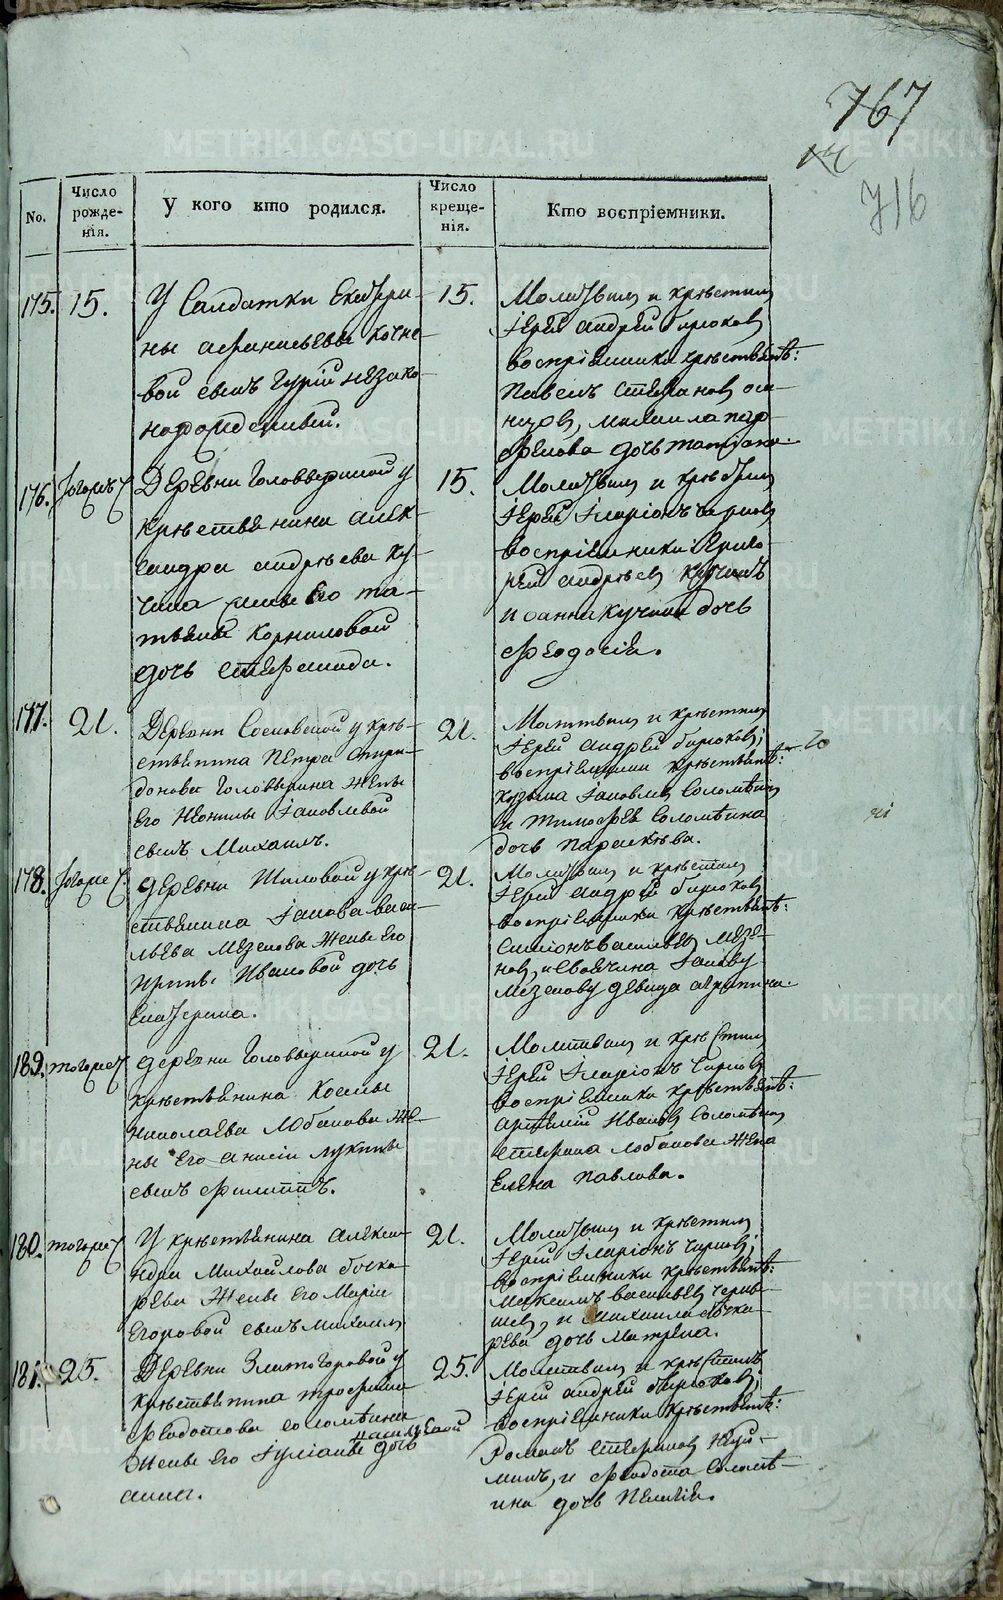 767
716
No.
Число рожде- нія.
У кого кто родился.
Число креще- нія.
Кто воспріемники.
175. 15.
У Салдатки Екатери-
ны Афанасьевы Кочне-
вой сынъ Гурій незако-
норожденный.
15.
Молитвилъ и крѣстилъ
Іерей Андрей Бирюковъ
воспріемники крѣстьянѣ:
Павелъ Стефановъ
Михаила пар-
фенова дочь Татіана.
176. тогожъ
Деревни Головыриной у
Крѣстьянина Алек-
сандра Андрѣева Ку-
чина жены Его Та-
тьяны Корниловой
дочь Стефанида.
15.
Молитвилъ и крѣстилъ
Іерей Іларіонъ Чирковъ
воспріемники Григо-
рей Андрѣевъ Кучинъ
Иоанна Кучина дочь
Феодосія.
177. 21.
Деревни Сосновской у крѣ-
стьянина Петра Спири-
донова Головырина жены
Его Неонилы Іаковлевой
сынъ Михаилъ.
21.
Молитвилъ и крѣстилъ
Іерей Андрей Бирюковъ;
воспріемники крѣстьянѣ:
Кузьма Іаковлевъ Соломѣинъ
и Тимофея Соломѣина
дочь Параскѣва.
178. тогоже
деревни Шиловой у крѣ-
стьянина Іакова Васи-
льева Мезенова жены Его
Ирины Ивановой дочь
Екатерина.
21.
Молитвилъ и крѣстилъ
Іерей Андрей Бирюковъ
воспріемники крѣстьянѣ:
Симіонъ Васильевъ Мезе-
новъ, и Іакову
Мезенову девица Агрипина.
189. тогоже
деревни Головыриной у
крѣстьянина Косьмы
Николаева Лобанова же-
ны Его Анисіи Лукины
сынъ Филиппъ.
21.
Молитвилъ и крѣстилъ
Іерей Іларіонъ Чирковъ
воспріемники крѣстьянѣ:
Артемій Ивановъ Соломѣинъ
Стефана Лобанова жена
Елена Павлова.
180. тогоже
У крѣстьянина Алекса-
ндра Михайлова Бочка-
рева жены Его Маріи
Егоровой сынъ Михаилъ
21.
Молитвилъ и крѣстилъ
Іерей Іларіонъ Чирковъ;
воспріемники крѣстьянѣ:
Максимъ Васильевъ Черны-
шевъ, и Михаила Бочка-
рева дочь Матрена.
181. 25.
Деревни Златогоровой у
крѣстьянина Трофима
Федотова Соломѣина
жены Его Іуліаны дочь
Анна.
25.
Молитвилъ и крѣстилъ
Іерей Андрей Бирюковъ;
воспріемники крѣстьянѣ:
Романъ Стефановъ Неуй-
минъ, и Федота Соломѣ-
ина дочь Пелагія.
20
METRIKI.GASO-URAL.RU